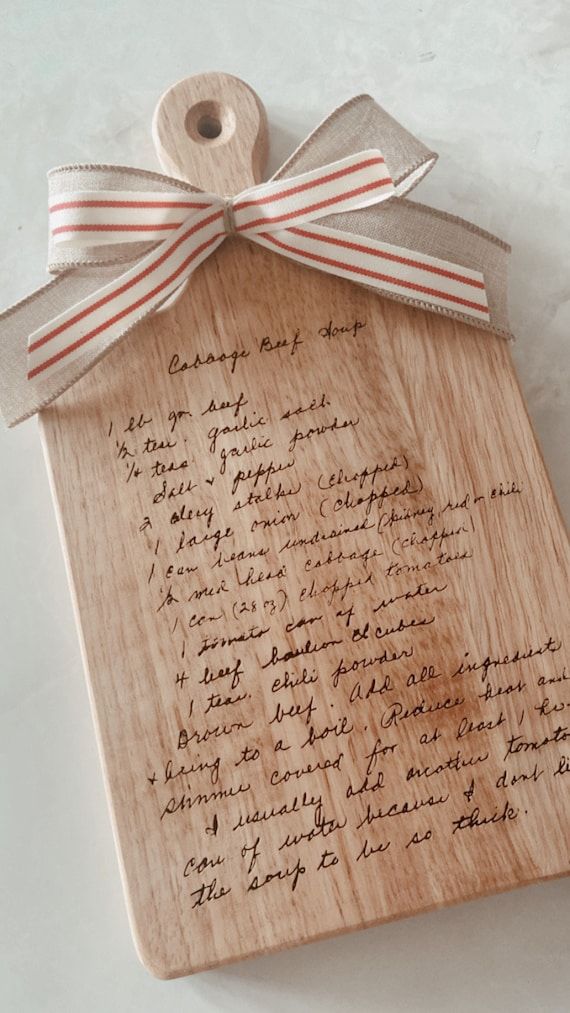 Cabbage Beef Soup
1 lb gr. beef
1/2 teas. garlic salt
1/4 teas. garlic powder
Salt + pepper
2 celery stalks (chopped)
1 large onion (chopped)
1 can beans undrained (kidney, red or chili
1/2 med head cabbage (chopped)
1 can (28 oz) chopped tomatoes
1 tomato can of water
4 beef boulion cubes
1 teas. chili powder
Brown beef. Add all ingredients
+ bring to a boil. Reduce heat and
simmer covered for at least 1 hr.
I usually add another tomato
can of water because I dont li
the soup to be so thick.